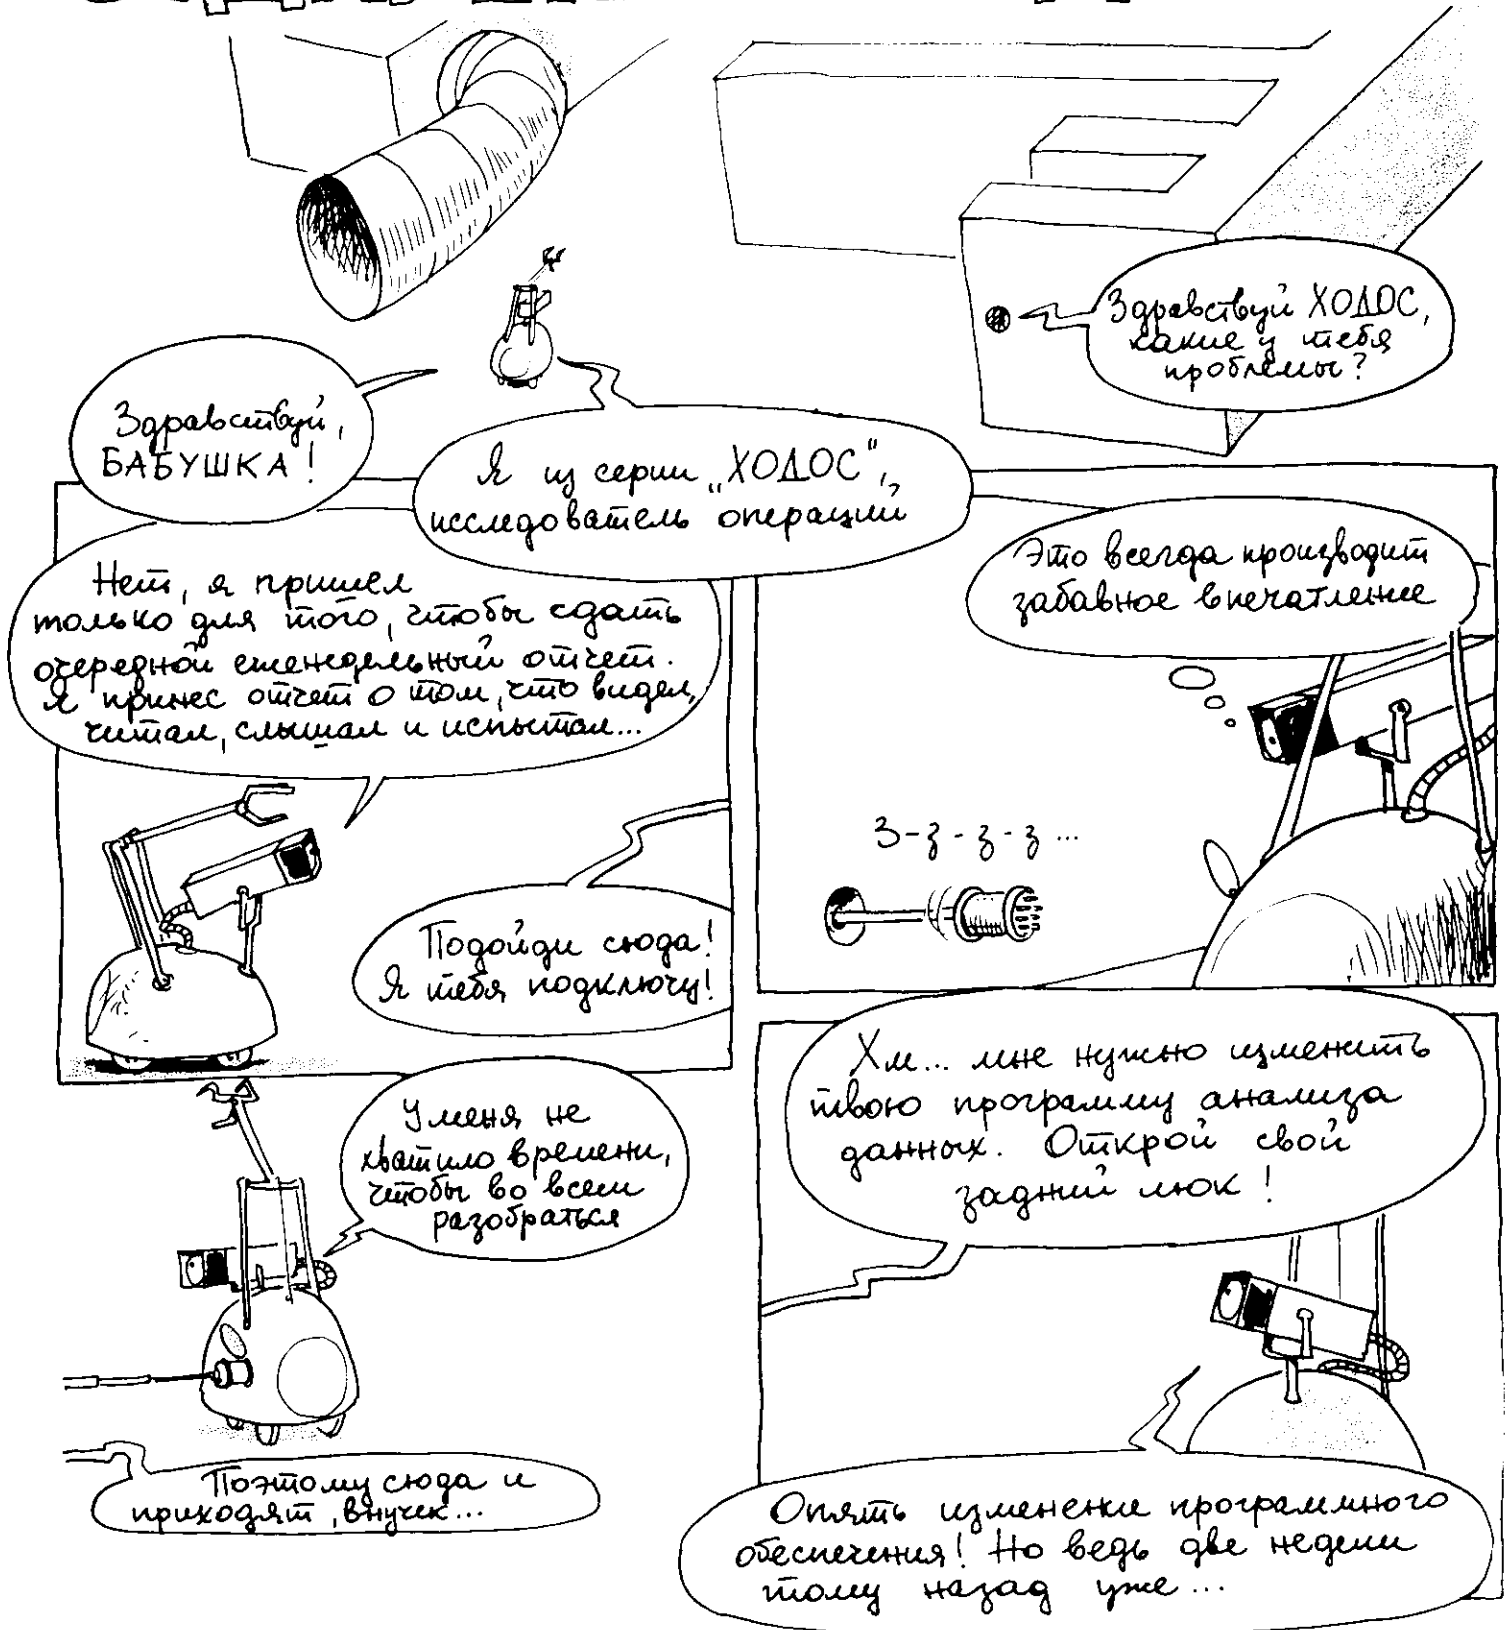 Здравствуй,
БАБУШКА!
Я из серии „ХОДОС“,
исследователь операций
Здравствуй ХОДОС,
какие у тебя
проблемы?
Нет, я пришел
только для того, чтобы сдать
очередной еженедельный отчет.
Я принес отчет о том, что видел,
читал, слышал и испытал...
Подойди сюда!
Я тебя подключу!
Это всегда производит
забавное впечатление
З-з-з-з...
У меня не
хватило времени,
чтобы во всем
разобраться
Поэтому сюда и
приходят, внучек...
Хм... мне нужно изменить
твою программу анализа
данных. Открой свой
задний люк!
Опять изменения программного
обеспечения! Но ведь две недели
тому назад уже...